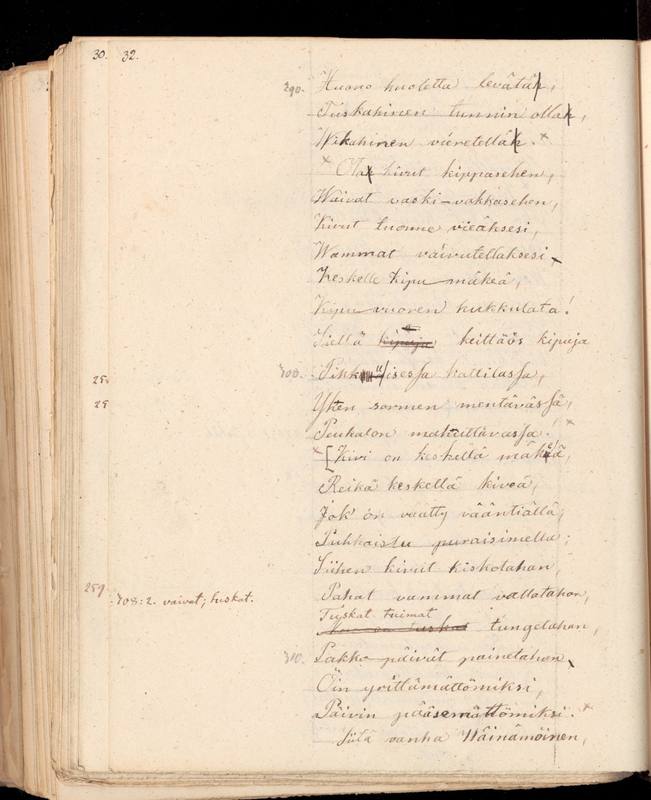 30. 32.
290. Huono huoletta levätä,
Tuskahinen tunnin olla,
Wikahinen vieretellä.
Ota kivut kippasehen,
Waivat vaski-vakkasehen,
Kivut tuonne vieäksesi,
Wammat vaivutellaksesi,
Keskelle Kipu-mäkeä,
Kipu-vuoren kukkulata!
Siellä keittäös kipuja
300. isessä kattilassa,
25. Yhen sormen mentävässä,
25 Peukalon mahuttavassa!
[Kivi on keskellä mäkeä,
Reikä keskellä kiveä,
Jok' on vaatty vääntiällä,
Puhkaistu puraisimella;
Siihen kivut kiskotahan,
259 708:2. vaivat; tuskat. Pahat vammat vallatahan,
Tuskat tuimat tungetahan,
310. Pakko-päivät painetahan,
Öin yrittämättömiksi,
Päivin pääsemättömiksi.
Siitä vanha Wäinämöinen,